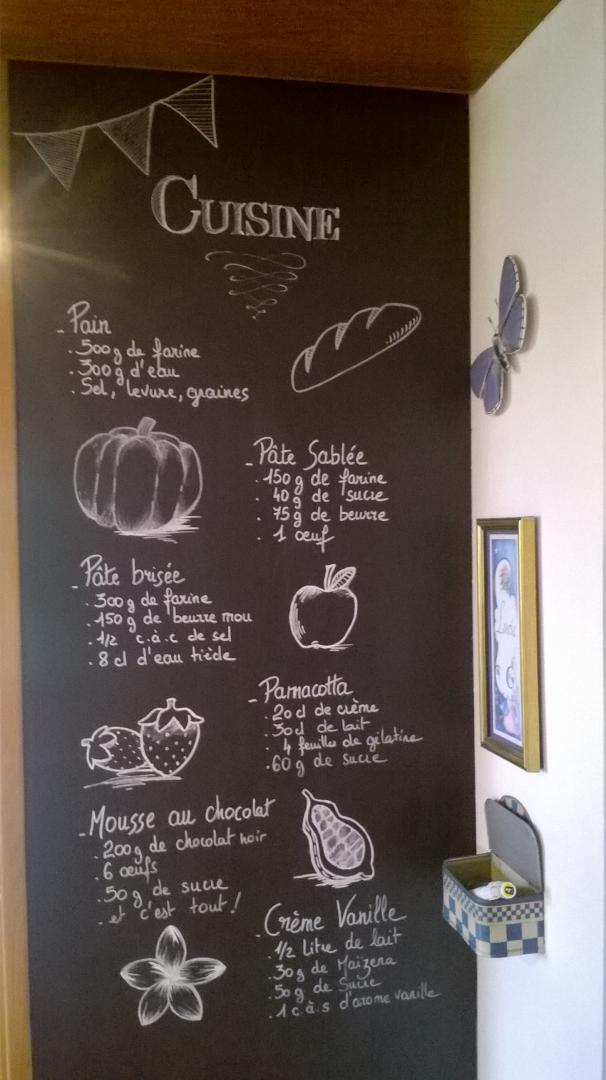 CUISINE
- Pain
. 500g de farine
. 300g d'eau
. Sel, levure, graines
- Pâte Sablée
. 150g de farine
. 40g de sucre
. 75g de beurre
. 1 œuf
- Pâte brisée
. 300g de farine
. 150g de beurre mou
. 1/2 c.à.c de sel
. 8 cl d'eau tiède
- Pannacotta
. 20 cl de crème
. 30 cl de lait
. 4 feuilles de gélatine
. 60g de sucre
- Mousse au chocolat
. 200g de chocolat noir
. 6 œufs
. 50g de sucre
. et c'est tout!
- Crème Vanille
. 1/2 Litre de lait
. 30g de Maïzena
. 50g de Sucre
. 1 c.à.s d'arome vanille